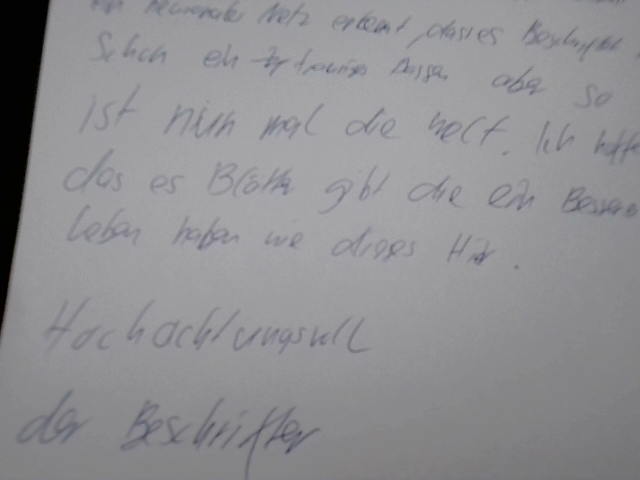 ein neuronales Netz erkennt, dass es Beschriftet
Schon ein trauriges Dasein aber so
ist nun mal die Welt. Ich hoffe
das es Blätter gibt die ein Besseres
Leben haben wie dieses Hir.
Hochachtungsvoll
der Beschrifter